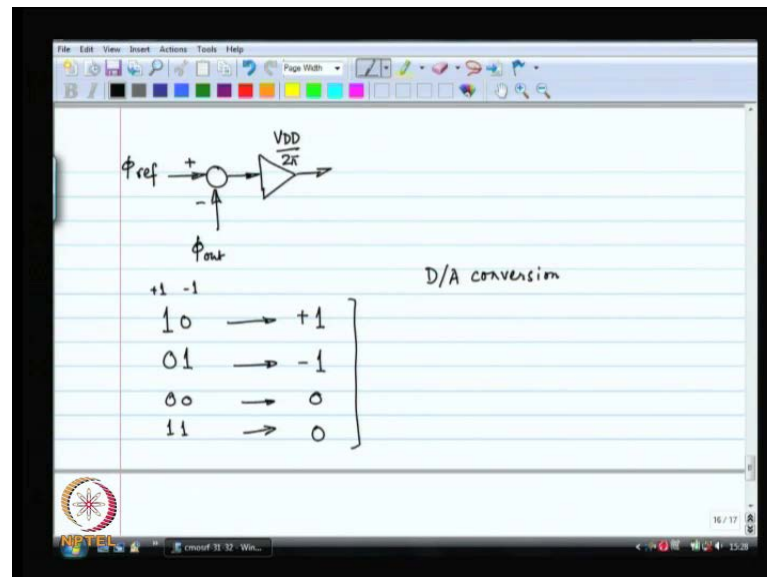 File Edit View Insert Actions Tools Help
Page Width
B I
VDD
2π
ϕref + 
-
ϕout
D/A conversion
+1 -1
10 → +1
01 → -1
00 → 0
11 → 0
16 / 17
NPTEL
cmosrf-31-32 - Win...
15:28